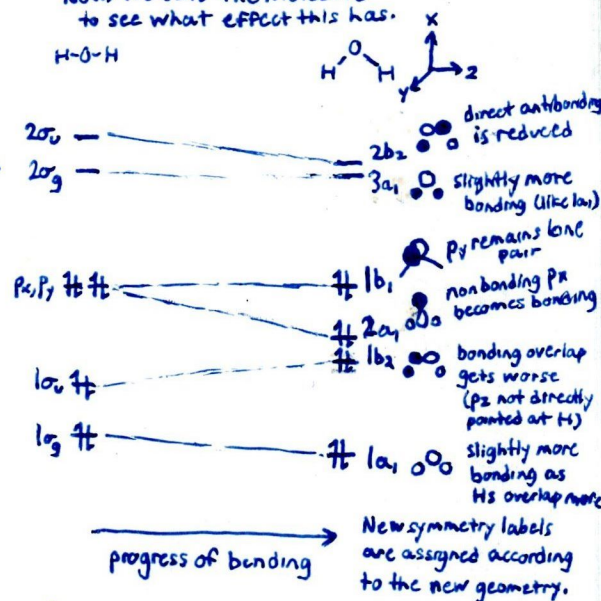 to see what effect this has.
H-O-H
O
H H
X
Y
Z
2σu
2b2
direct antibonding
is reduced
2σg
3a1
slightly more
bonding (like 1a1)
px,py
1b1
py remains lone
pair
2a1
nonbonding px
becomes bonding
1σu
1b2
bonding overlap
gets worse
(pz not directly
pointed at H)
1σg
1a1
slightly more
bonding as
Hs overlap more
progress of bending
New symmetry labels
are assigned according
to the new geometry.